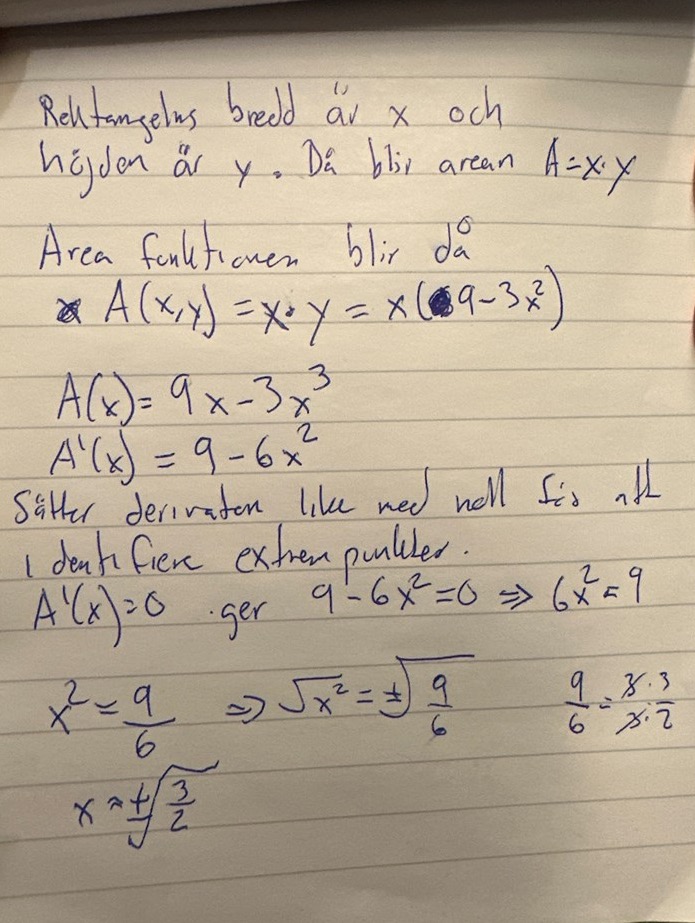 Rektangelns bredd är x och
höjden är y. Då blir arean A=x·y
Area funktionen blir då
A(x,y) = x·y = x(9-3x²)
A(x)= 9x-3x³
A'(x) = 9-6x²
Sätter derivatan like med noll för att
identifiera extrempunkter.
A'(x)=0 ger 9-6x²=0 ⇒ 6x²=9
x² = 9/6 ⇒ √x² = ±√(9/6) 9/6 = 3·3/3·2
x = ±√(3/2)